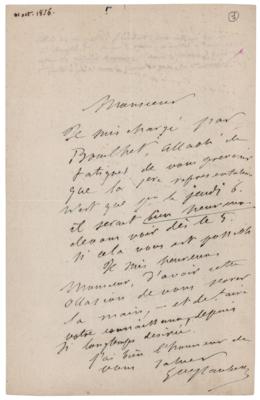 oct. 1856.
3
Monsieur
Je suis chargé par
Bouilhet, accablé de
fatigues, de vous prévenir
que la 1ère représentation
n'est que pr le jeudi 6.
il serait bien heureux
de vous voir dès le 5.
si cela vous est possible
Je suis heureux
Monsieur, d'avoir cette
occasion de vous serrer
la main, – et de faire
votre connaissance, depuis
si longtemps désirée.
j'ai bien l'honneur de
vous saluer
Gve Flaubert